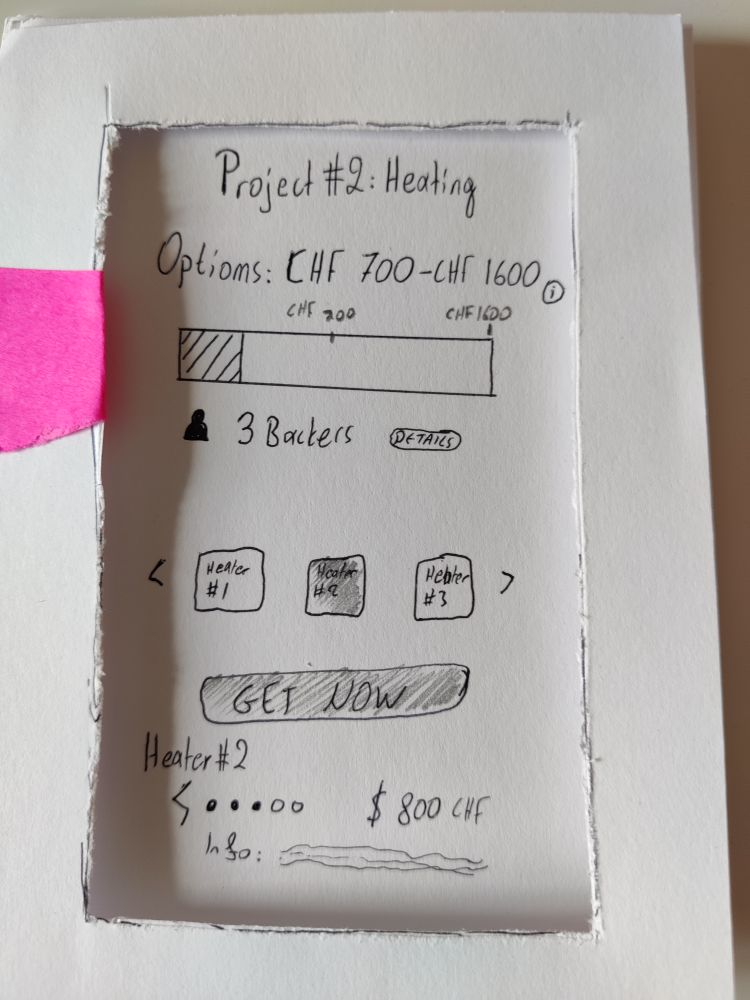 Project #2: Heating
Options: CHF 700-CHF 1600 i
CHF 700 CHF 1600
3 Backers DETAILS
< Heater #1 Heater #2 Heater #3 >
GET NOW
Heater #2
$ 800 CHF
Info: